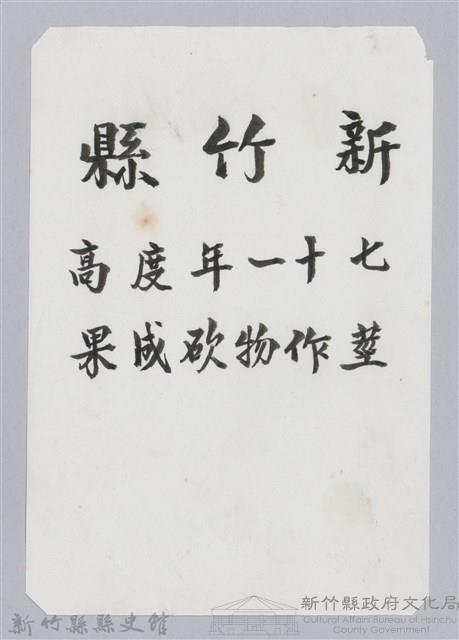 新竹縣
七十一年度高
莖作物砍成果
新竹縣縣史館
新竹縣政府文化局
Cultural Affairs Bureau of Hsinchu
County Government